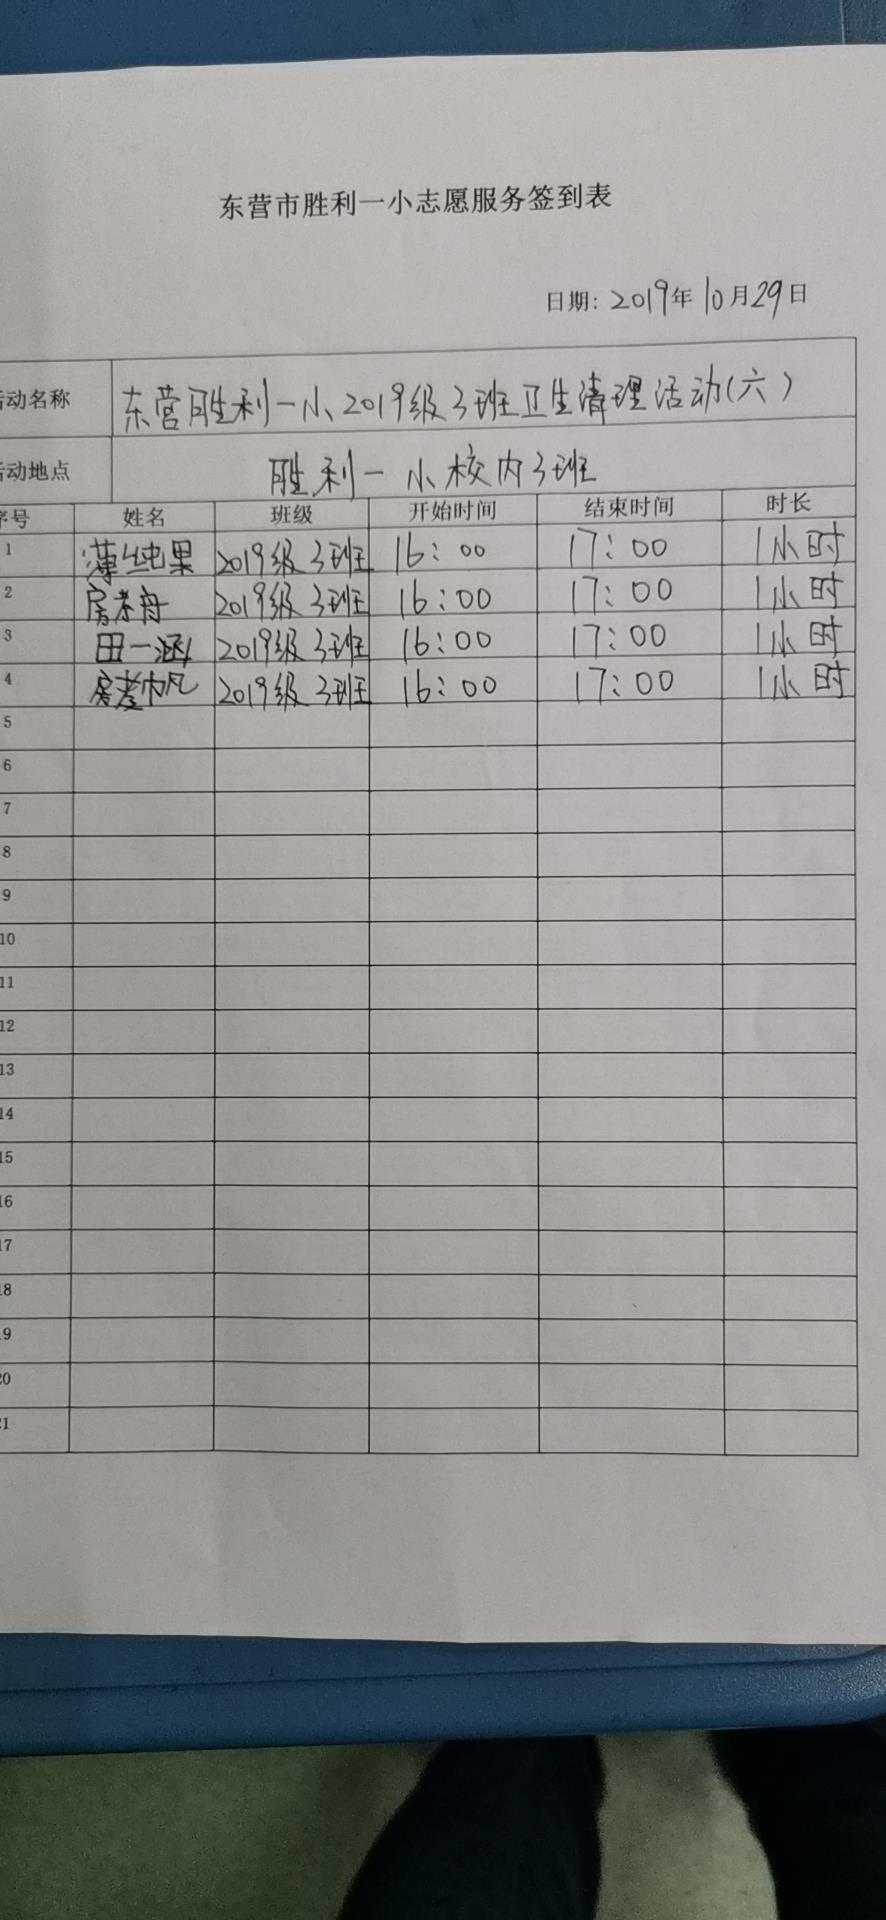 东营市胜利一小志愿服务签到表
日期: 2019年10月29日
活动名称 东营胜利一小2019级3班卫生清理活动(六)
活动地点 胜利一小校内3班
序号 姓名 班级 开始时间 结束时间 时长
1 薄纯果 2019级3班 16:00 17:00 1小时
2 房孝舟 2019级3班 16:00 17:00 1小时
3 田一涵 2019级3班 16:00 17:00 1小时
4 房孝帆 2019级3班 16:00 17:00 1小时
5
6
7
8
9
10
11
12
13
14
15
16
17
18
19
20
21